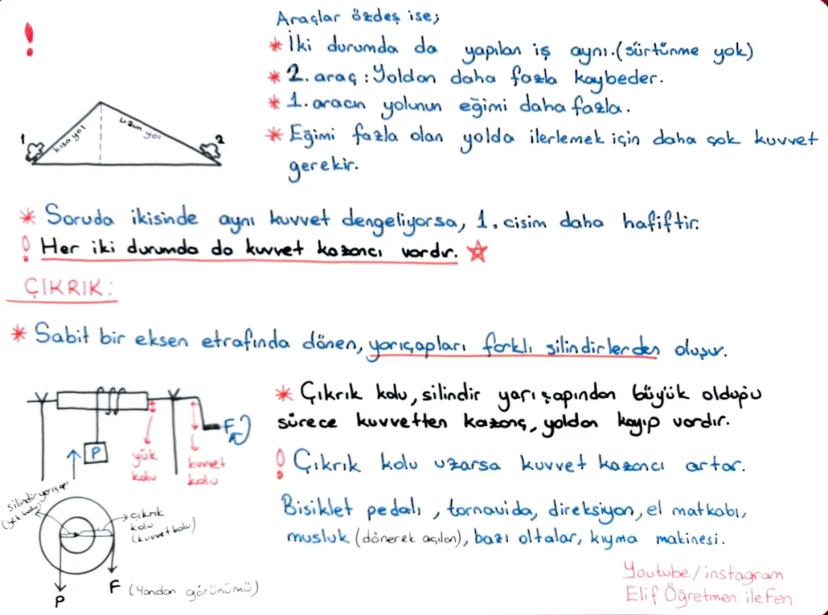 !
Araçlar özdeş ise;
* İki durumda da yapılan iş aynı.(sürtünme yok)
* 2. araç : Yoldan daha fazla kaybeder.
* 1. aracın yolunun eğimi daha fazla.
* Eğimi fazla olan yolda ilerlemek için daha çok kuvvet
gerekir.
1 kısa yol uzun yol 2
* Soruda ikisinde aynı kuvvet dengeliyorsa, 1. cisim daha hafiftir.
! Her iki durumda da kuvvet kazancı vardır. ☆
ÇIKRIK:
* Sabit bir eksen etrafında dönen, yarıçapları farklı silindirlerden oluşur.
* Çıkrık kolu, silindir yarıçapından büyük olduğu
sürece kuvvetten kazanç, yoldan kayıp vardır.
! Çıkrık kolu uzarsa kuvvet kazancı artar.
Bisiklet pedalı , tornavida, direksiyon, el matkabı,
musluk (dönerek açılan), bazı oltalar, kıyma makinesi.
P
yük
kolu
kuvvet
kolu
F
silindir yarıçapı
(yük kolu)
çıkrık
kolu
(kuvvet kolu)
P
F (Yandan görünümü)
Youtube/instagram
Elif Öğretmen ile Fen